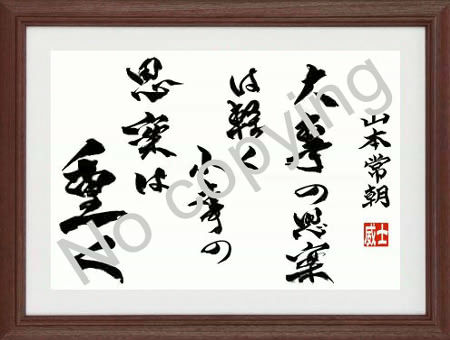 山本常朝
威士
大事の思案
は軽く
小事の
思案は
重く
No copying